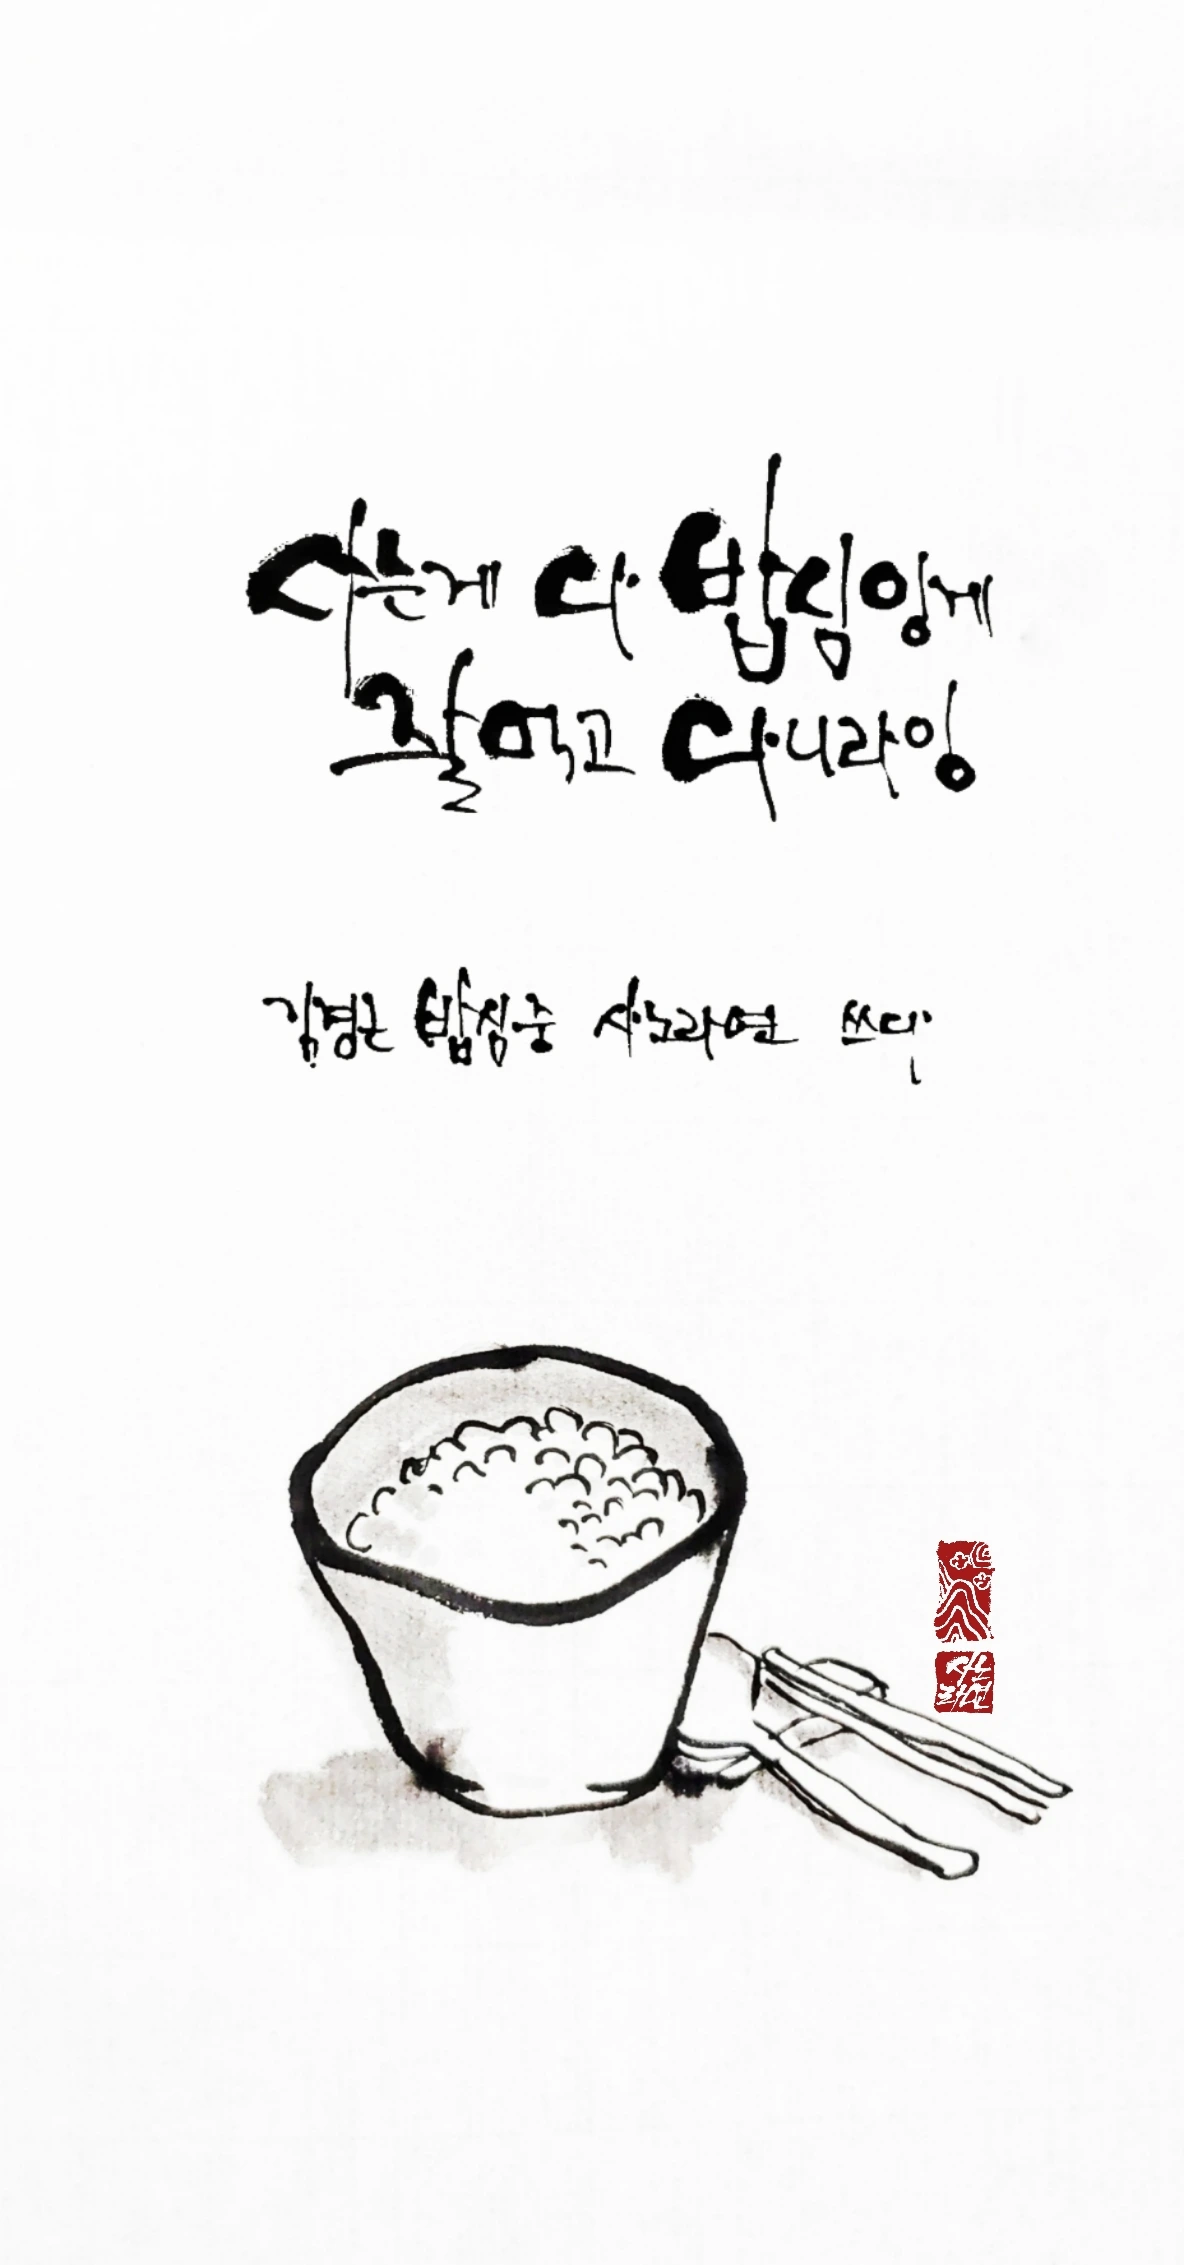 사는게 다 밥심잉게
잘 먹고 다니라잉
김경근 밥심 중 산노라연 쓰다